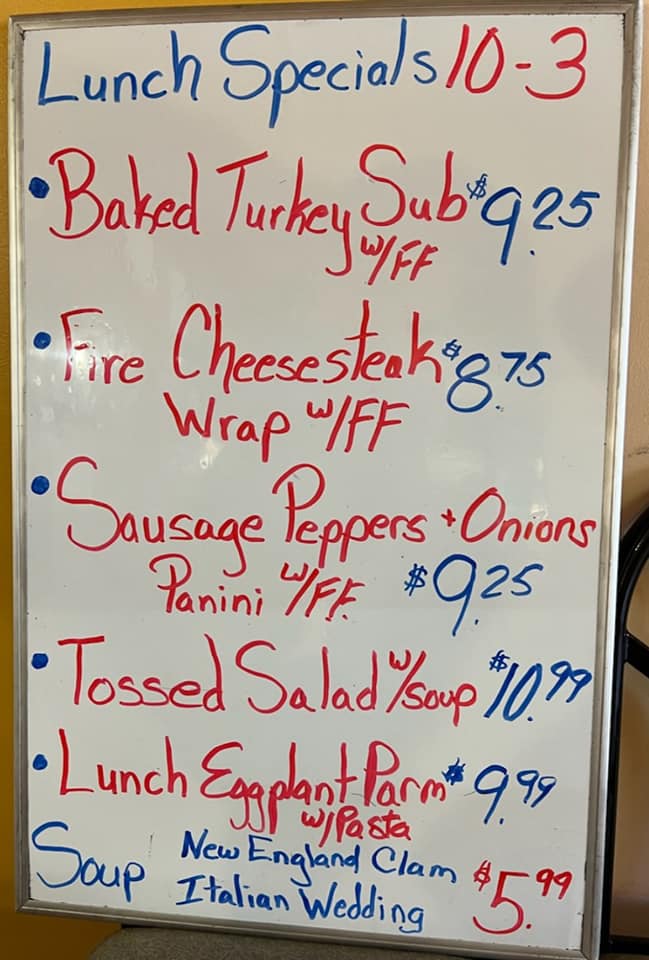 Lunch Specials 10-3
• Baked Turkey Sub $9.25
w/FF
• Fire Cheesesteak $8.75
Wrap w/FF
• Sausage Peppers + Onions
Panini w/F.F. $9.25
• Tossed Salad w/soup $10.99
• Lunch Eggplant Parm $9.99
w/Pasta
Soup New England Clam $5.99
Italian Wedding